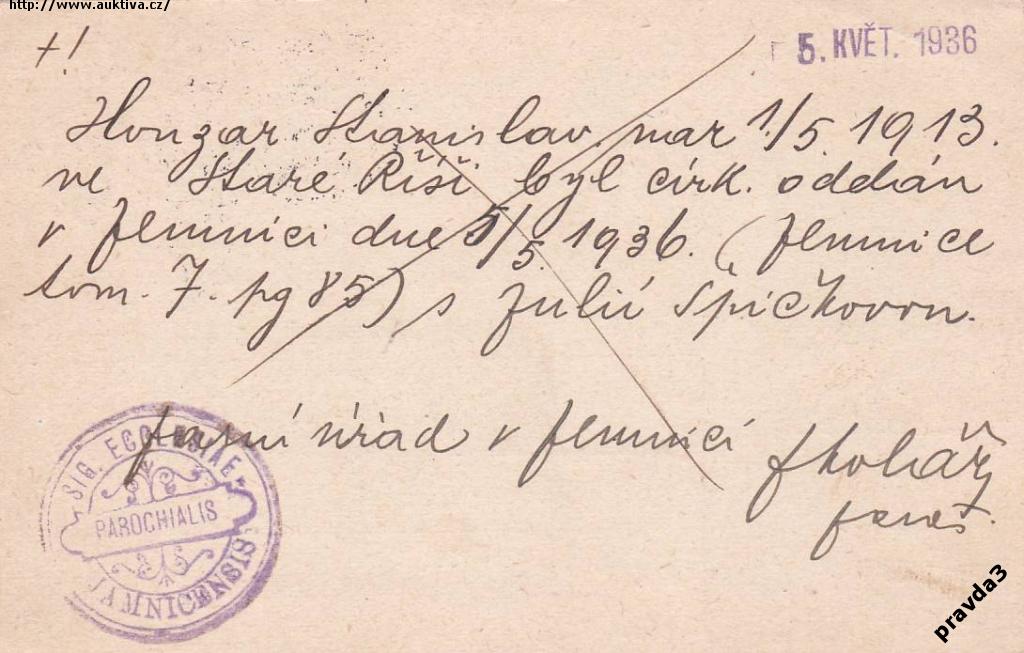 http://www.auktiva.cz/
+!
5. KVĚT. 1936
Honzar Stanislav nar 1./5. 1913.
ve Staré Říši byl círk. oddán
v Jemnici dne 5/5. 1936. (Jemnice
tom. 7. pg 85) s Julií Špičkovou.
farní úřad v Jemnici
farář.
SIG. ECCLESIAE
PAROCHIALIS
JAMNICENSIS
pravda3